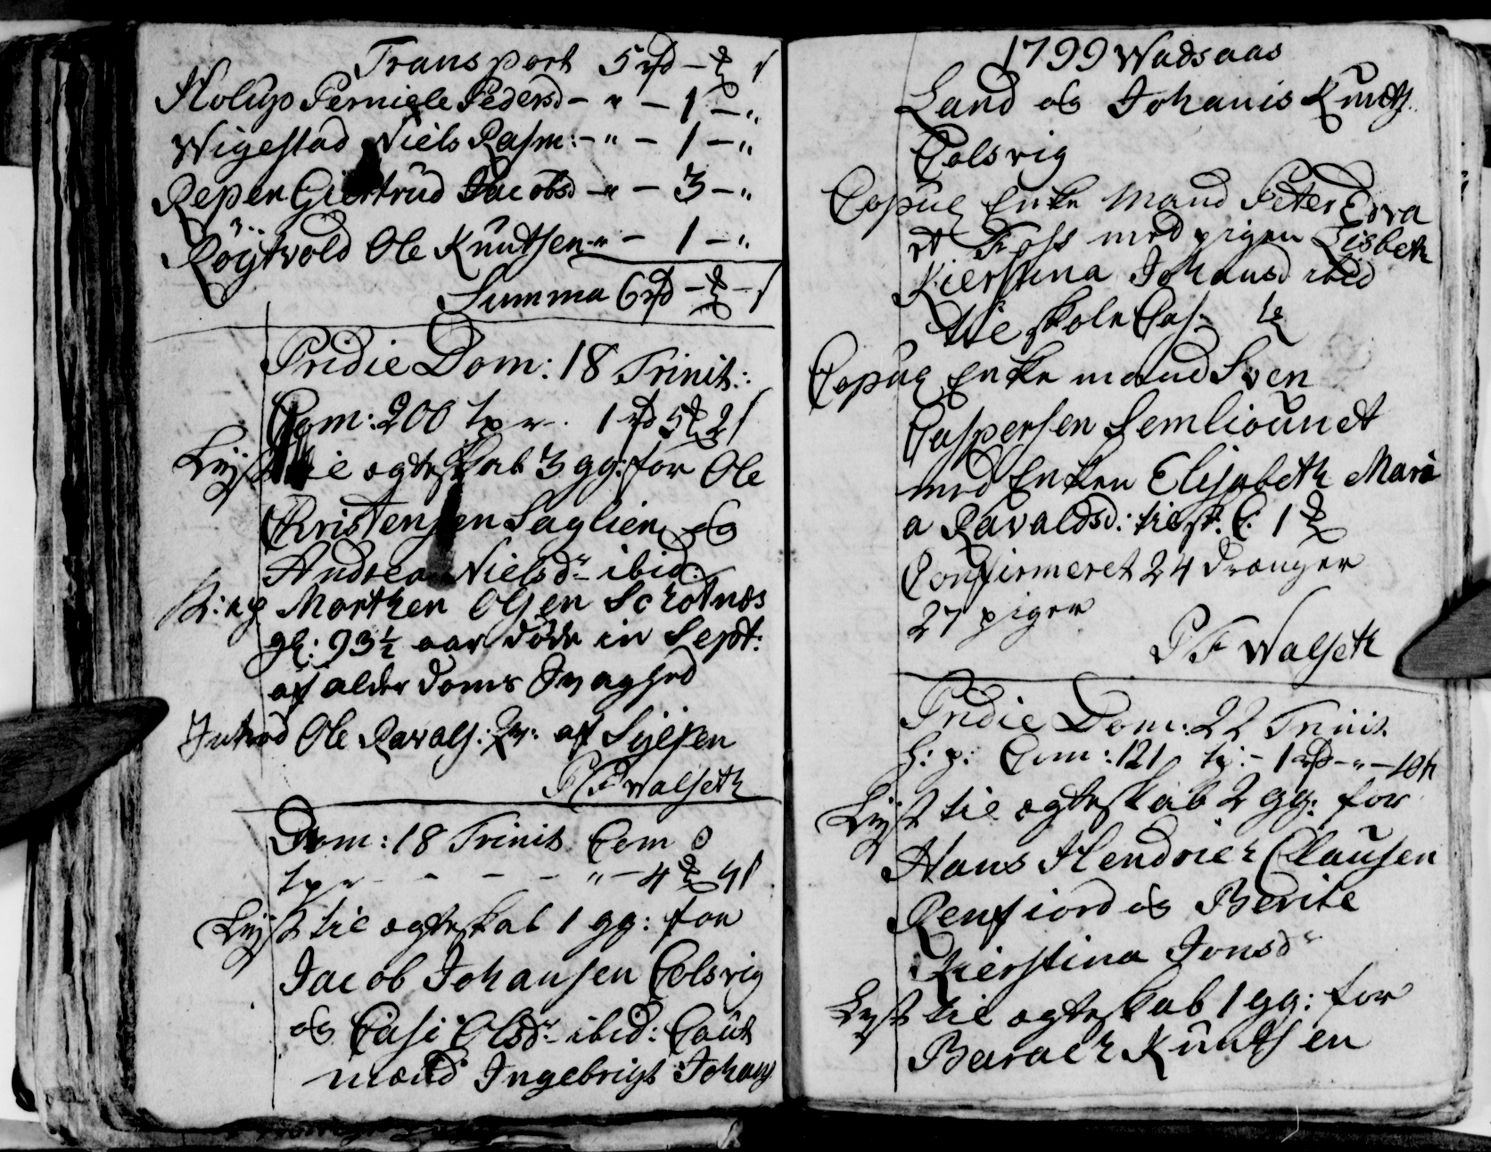 Transport 5 rd - "
Holup Perniele Pedersd - " - 1 - "
Wigestad Niels Rasm: - " - 1 - "
Reper Giertrud Jacobsd - " - 3 - "
Røytvold Ole Knutsen - " - 1 - "
Summa 6 rd
Pridie Dom: 18 Trinit:
Com: 200 1 rd 5 2 s
Lyst til ægteskab 3 gg: for Ole
Christensen Saglien og
Andrea Nielsdr ibid.
Morthen Olsen Schotnæs
gl: 93½ aar døde in Sept:
af alder doms svaghed
Introd Ole Ravals: Qv: af Sylsen
P F Walseth
Dom: 18 Trinit Com 0
tp " - 4 4 s
Lyst til ægteskab 1 gg: for
Jacob Johansen Colsvig
og Casi Olsdr ibid: Caut
mænd Ingebrigt Johans
1799 Wadsaas
Land og Johanis Knuts
Colsvig
Copul Enke Mand Peter Edva
rt Foss med pigen Lisbeth
Kierstina Johansd ibid
til skole Cas.
Copul Enke mand Sven
Caspersen Semliounet
med Enken Elisabeth Mari
a Ravaldsd: til sk. C: 1
Confirmeret 24 drænger
27 piger
P F Walseth
Pridie Dom: 22 Trinit.
h: p: Com: 121 tp: - 1 rd - " - 10 s
Lyst til ægteskab 2 gg: for
Hans Hendrich Clausen
Renfiord og Berite
Kierstina Jonsdr
Lyst til ægteskab 1 gg: for
Barach Knutsen